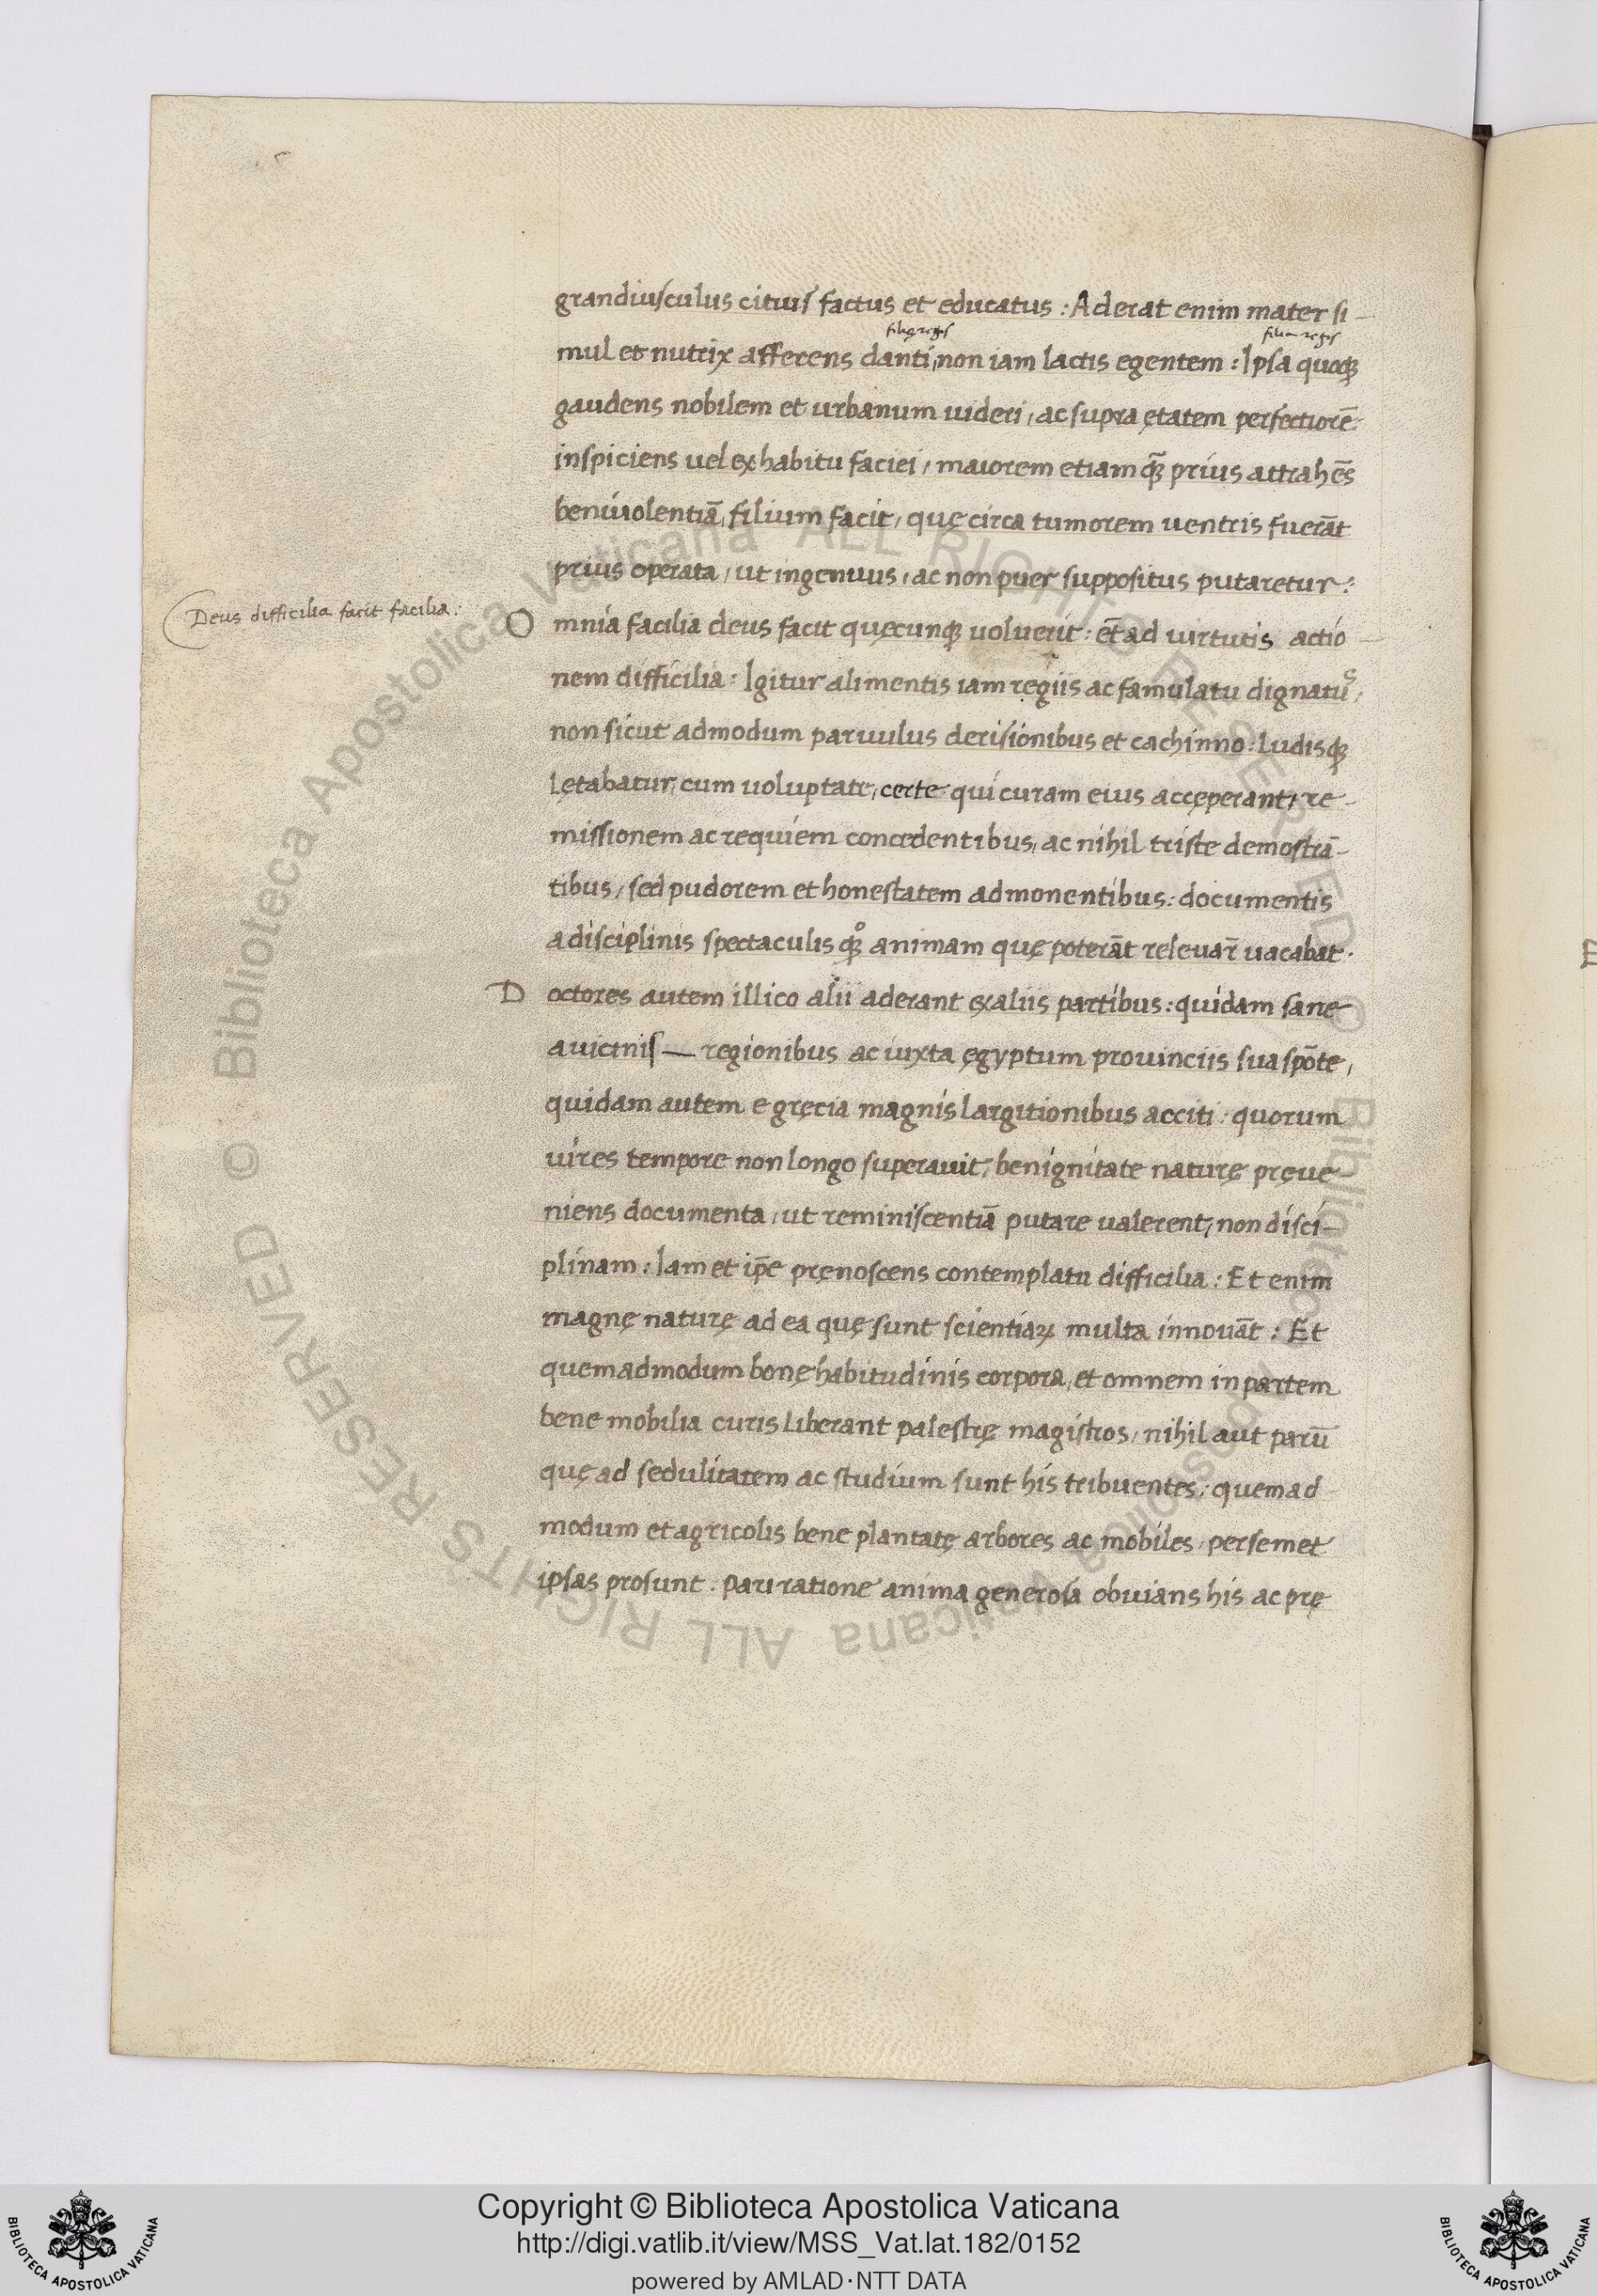 grandiusculus citius factus et educatus : Aderat enim mater si-
filię regis filia regis
mul et nutrix afferens danti, non iam lactis egentem : Ipsa quoqꝫ
gaudens nobilem et urbanum uideri, ac supra ętatem perfectiorē
inspiciens uel ex habitu faciei, maiorem etiam qꝫ̃ prius attrahēs
beniuolentiā, filium facit, quę circa tumorem uentris fuerāt
prius operata, ut ingenuus, ac non puer suppositus putaretur :
Deus difficilia facit facilia :
Omnia facilia deus facit quęcunqꝫ uoluerit : et̄ ad virtutis actio-
nem difficilia : Igitur alimentis iam regiis ac famulatu dignatus,
non sicut admodum paruulus derisionibus et cachinno : Ludisqꝫ
lętabatur, cum uoluptate, certe qui curam eius accęperant, re-
missionem ac requiem concedentibus, ac nihil triste demostrā-
tibus, sed pudorem et honestatem admonentibus : documentis
a disciplinis spectaculis qꝫͦ animam quę poterāt releuar̄ uacabat.
Doctores autem illico alii aderant ex aliis partibus : quidam sane
a uicinis — regionibus ac iuxta ęgyptum prouinciis sua spōte,
quidam autem e gręcia magnis largitionibus acciti : quorum
uires tempore non longo superauit, benignitate naturę pręue
niens documenta, ut reminiscentiā putare ualerent, non disci-
plinam : Iam et ip̄e pręnoscens contemplatu difficilia : Et enim
magnę naturę ad ea quę sunt scientiaꝝ multa innouāt : Et
quemadmodum bonę habitudinis corpora, et omnem in partem
bene mobilia curis liberant palestrę magistros, nihil aut parū
quę ad sedulitatem ac studium sunt his tribuentes : quemad
modum et agricolis bene plantatę arbores ac mobiles per semet
ipsas prosunt. pari ratione anima generosa obuians his ac prę
Copyright © Biblioteca Apostolica Vaticana
http://digi.vatlib.it/view/MSS_Vat.lat.182/0152
powered by AMLAD·NTT DATA